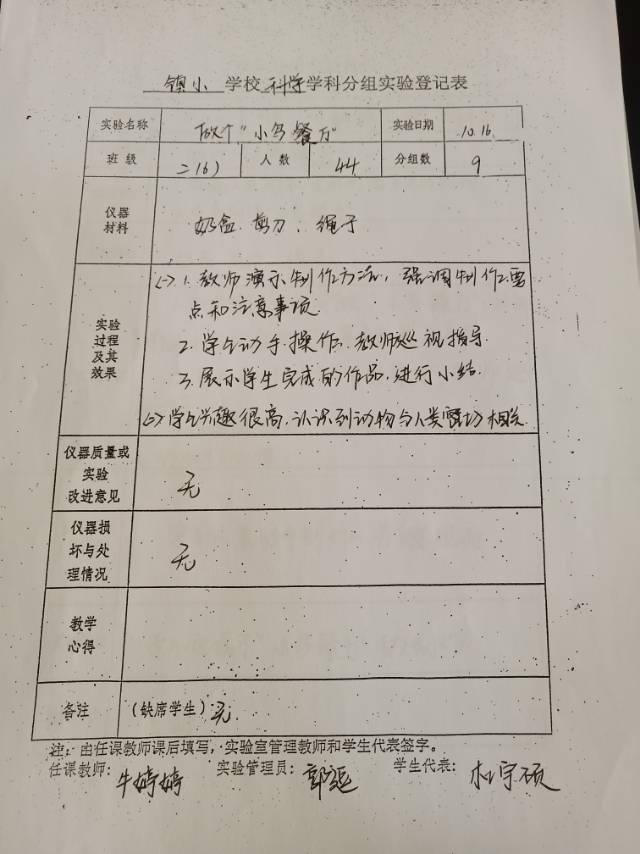 镇小 学校 科学 学科分组实验登记表
实验名称 做个“小鸟餐厅” 实验日期 10.16
班 级 二(6) 人 数 44 分组数 9
仪器
材料
奶盒、剪刀、绳子
实验
过程
及其
效果
(一) 1. 教师演示制作方法，强调制作要
点和注意事项.
2. 学生动手操作，教师巡视指导.
3. 展示学生完成的作品，进行小结.
学生兴趣很高，认识到动物与人类 相关
仪器质量或
实验
改进意见
无
仪器损
坏与处
理情况
无
教学
心得
备注 (缺席学生)：无.
注：由任课教师课后填写，实验室管理教师和学生代表签字。
任课教师：牛婷婷 实验管理员：郭 学生代表：杜宇硕